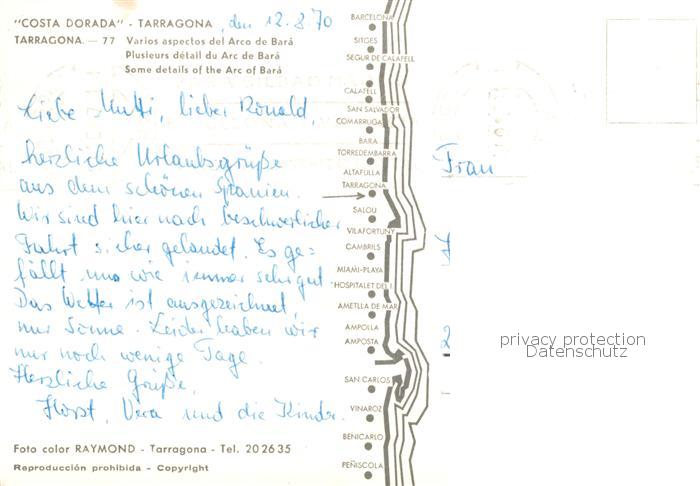 "COSTA DORADA" - TARRAGONA, den 12.8.70
TARRAGONA. — 77 Varios aspectos del Arco de Bará
Plusieurs détail du Arc de Bará
Some details of the Arc of Bará
Liebe Mutti, lieber Ronald,
herzliche Urlaubsgrüße
aus dem schönen Spanien.
Wir sind hier nach beschwerlicher
Fahrt sicher gelandet. Es ge=
fällt uns wie immer sehr gut
Das Wetter ist ausgezeichnet,
nur Sonne. Leider haben wir
nur noch wenige Tage.
Herzliche Grüße,
Horst, Vera und die Kinder.
Foto color RAYMOND - Tarragona - Tel. 202635
Reproducción prohibida - Copyright
BARCELONA
SITGES
SEGUR DE CALAFELL
CALAFELL
SAN SALVADOR
COMARRUGA
BARA
TORREDEMBARRA
ALTAFULLA
TARRAGONA
SALOU
VILAFORTUNY
CAMBRILS
MIAMI-PLAYA
HOSPITALET DEL I.
AMETLLA DE MAR
AMPOLLA
AMPOSTA
SAN CARLOS
VINAROZ
BENICARLO
PEÑISCOLA
Frau
2
privacy protection
Datenschutz